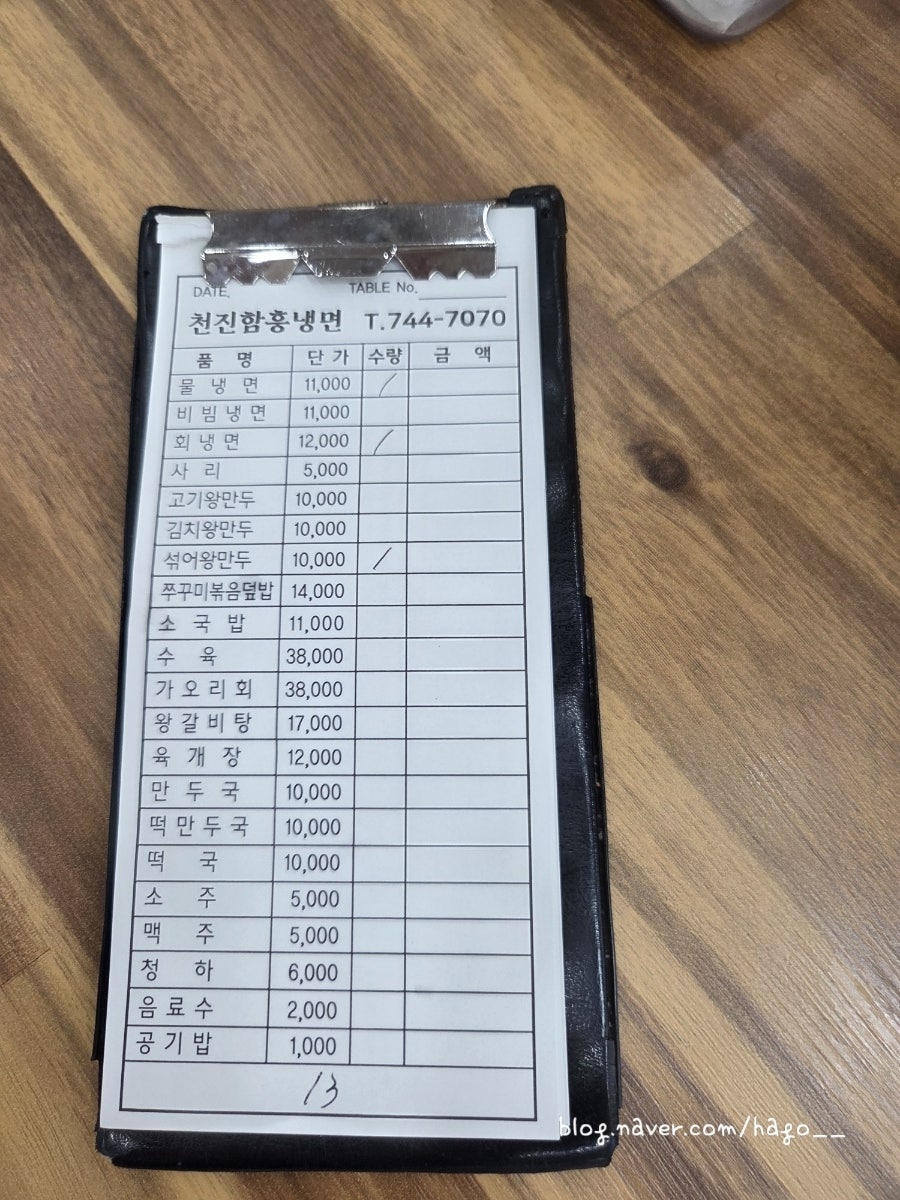 DATE. TABLE No.
천진함흥냉면 T.744-7070
품 명 단 가 수량 금 액
물 냉 면 11,000 /
비 빔 냉 면 11,000
회 냉 면 12,000 /
사 리 5,000
고기왕만두 10,000
김치왕만두 10,000
섞어왕만두 10,000 /
쭈꾸미볶음덮밥 14,000
소 국 밥 11,000
수 육 38,000
가 오 리 회 38,000
왕 갈 비 탕 17,000
육 개 장 12,000
만 두 국 10,000
떡 만 두 국 10,000
떡 국 10,000
소 주 5,000
맥 주 5,000
청 하 6,000
음 료 수 2,000
공 기 밥 1,000
13
blog.naver.com/hago__